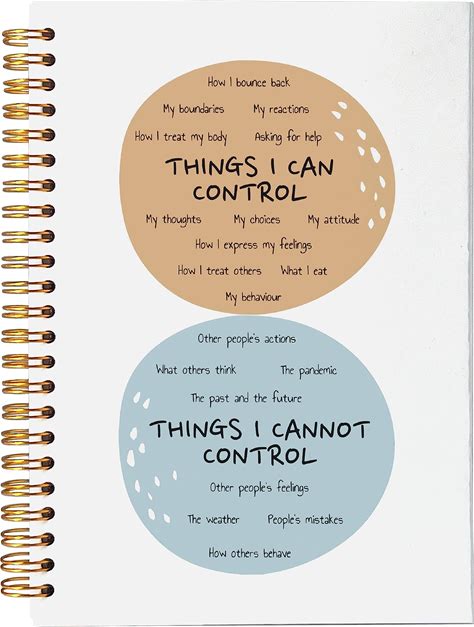 How I bounce back
My boundaries My reactions
How I treat my body Asking for help
THINGS I CAN
CONTROL
My thoughts My choices My attitude
How I express my feelings
How I treat others What I eat
My behaviour
Other people's actions
What others think The pandemic
The past and the future
THINGS I CANNOT
CONTROL
Other people's feelings
The weather People's mistakes
How others behave